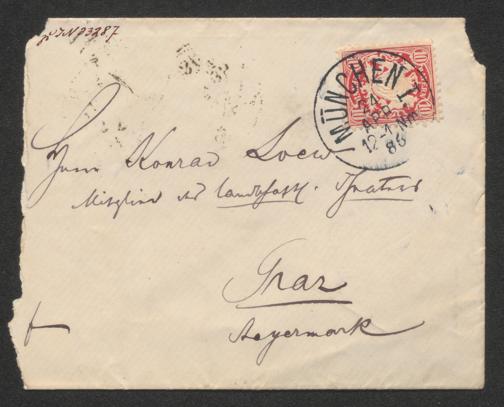 MÜNCHEN I.
24
APR
12-1 Nm
86
10
Herrn Konrad Loew
Mitglied des landschftl. Theaters
Graz
Steyermark